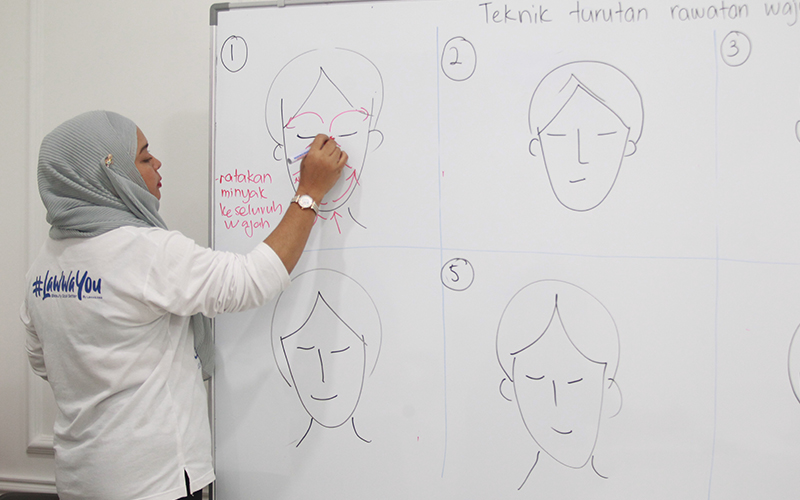 Teknik turutan rawatan waj
1
2
3
ratakan
minyak
ke seluruh
wajah
#LawwaYou
5